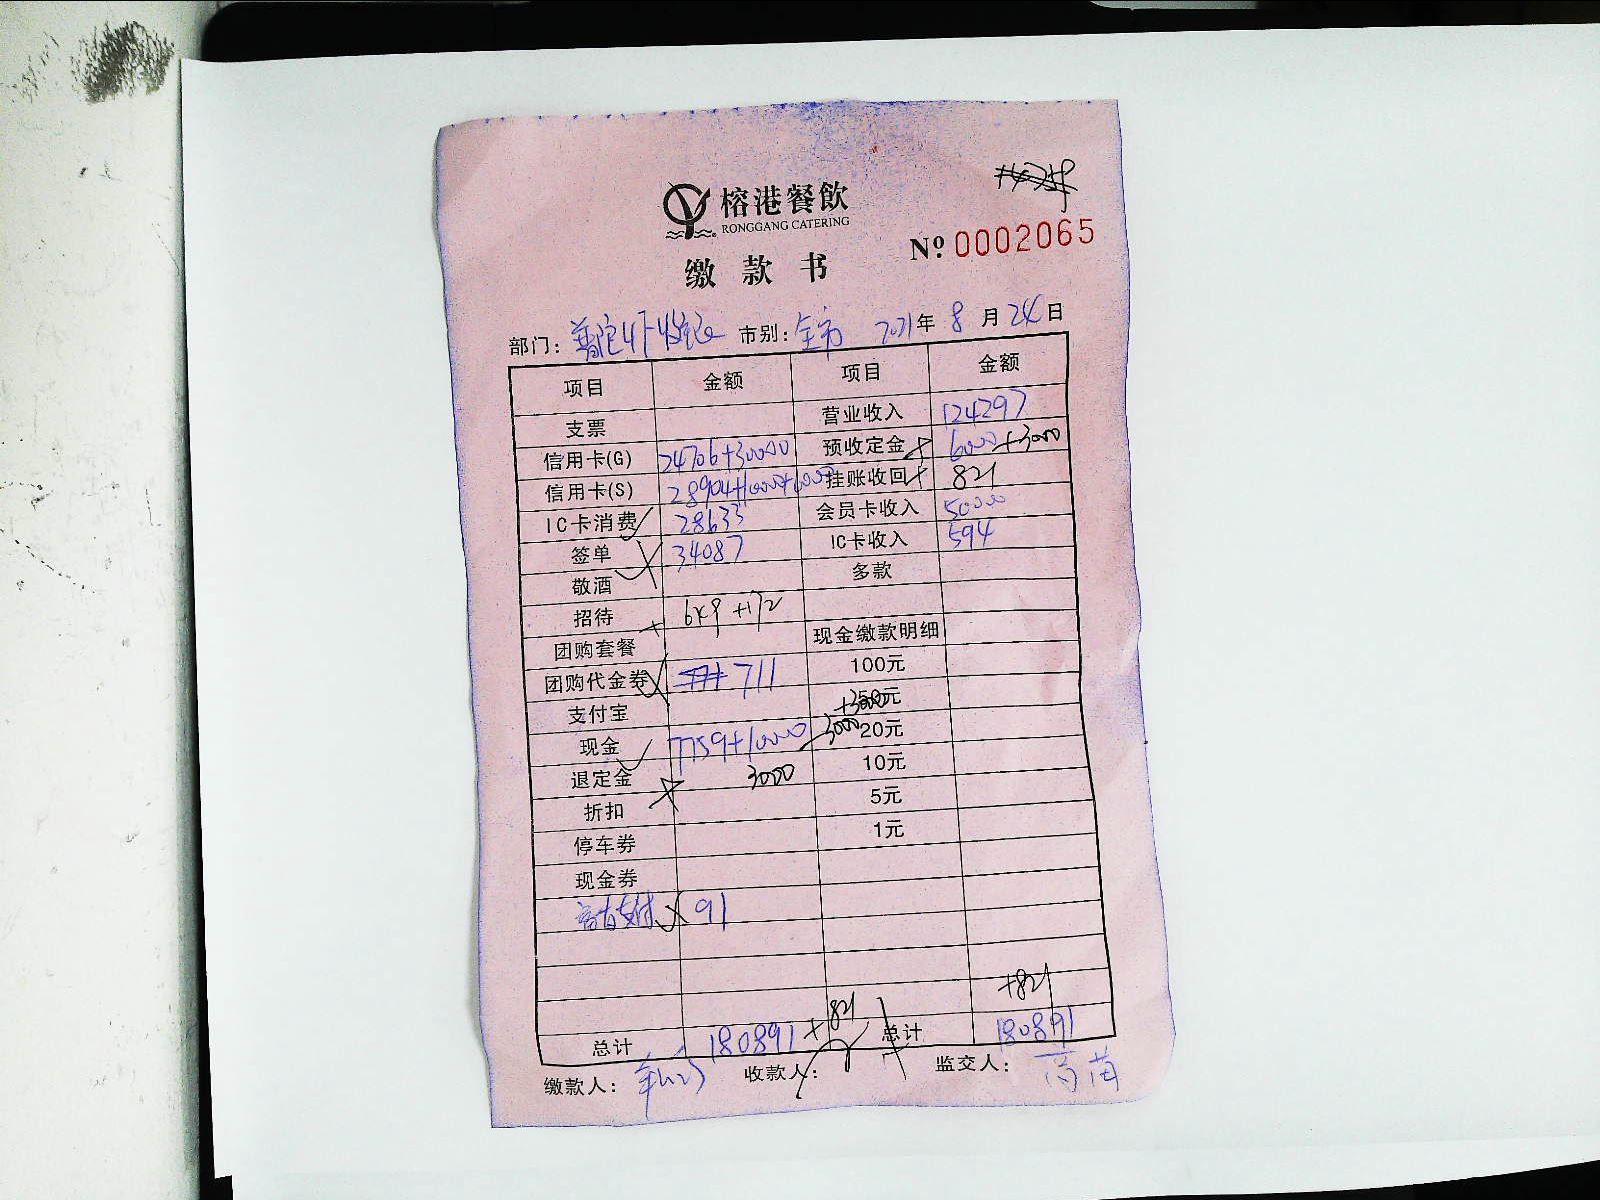 榕港餐飲
RONGGANG CATERING
№ 0002065
缴款书
部门: 普陀 市别: 全市 2021年 8月 24日
项目 金额 项目 金额
支票 营业收入 124297
信用卡(G) 24706+30000 预收定金 6000 +3000
信用卡(S) 28904+10000+6000 挂账收回 821
IC卡消费 28633 会员卡收入 50000
签单 34087 IC卡收入 594
敬酒 多款
招待 +172
团购套餐 现金缴款明细
团购代金券 711 100元
支付宝 50元 +3000
现金 7759+10000 3000 20元
退定金 3000 10元
折扣 5元
停车券 1元
现金券
支付 91
总计 180891 +821 总计 180891 +821
缴款人: 收款人: 监交人: 高苗